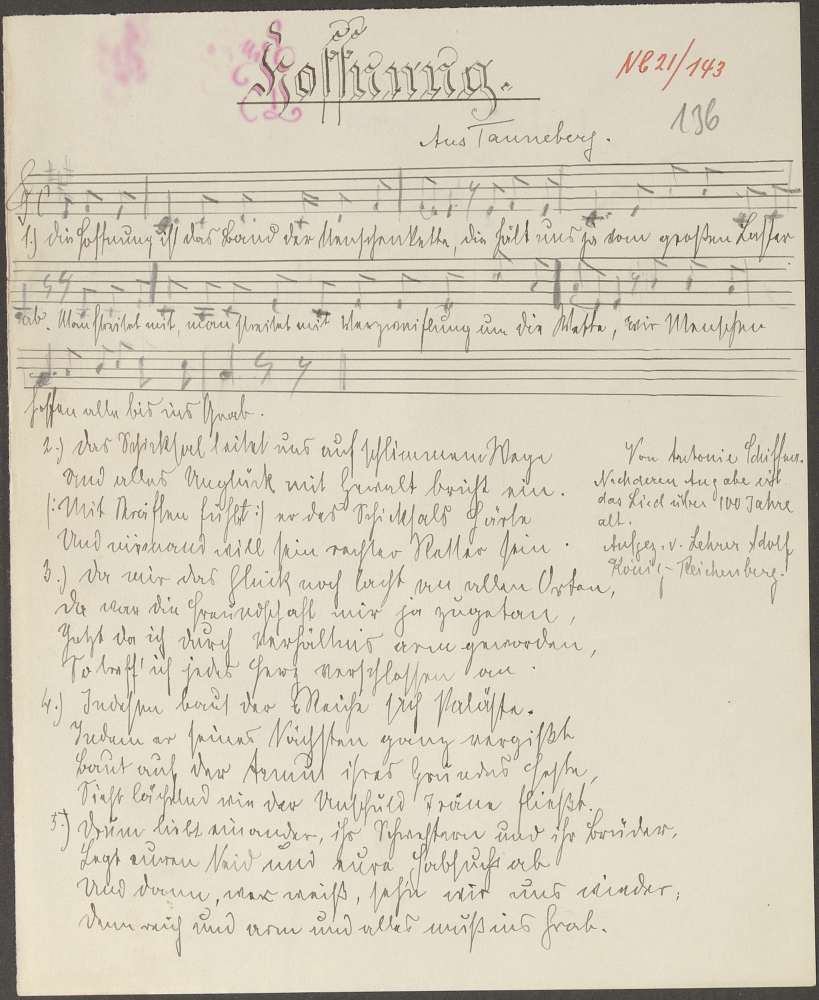 Hoffnung.
NC 21/143
136
Aus Tanneberg.
1.) Die Hoffnung ist das Band der Menschenkette, die hält uns ja vom großen Laster
ab. Man streitet mit, man streitet mit Verzweiflung um die Wette, wir Menschen
hoffen alle bis ins Grab.
2.) Das Schicksal leitet uns auf schlimmem Wege
Und alles Unglück mit Gewalt bricht ein.
|: Mit fühlt :| er des Schicksals Härte
Und niemand will sein rechter Retter sein.
Von Antonie Schiffner.
Nach deren Angabe ist
das Lied über 100 Jahre
alt.
Aufgez. v. Lehrer Adolf
König - Reichenberg.
3.) Da mir das Glück noch lacht an allen Orten,
Da war die Freundschaft mir ja zugetan,
Jetzt da ich durch Verhältnis arm geworden,
So treff' ich jedes Herz verschlossen an.
4.) Indessen baut der Reiche sich Paläste.
Indem er seines Nächsten ganz vergißt
Baut auf der Armut ihres Grundes Feste,
Sieht lächelnd wie der Unschuld Träne fließt.
5.) Drum liebt einander, ihr Schwestern und ihr Brüder,
Legt euren Neid und eure Habsucht ab
Und dann, wer weiß, seh'n wir uns wieder;
Denn reich und arm und alles muß ins Grab.